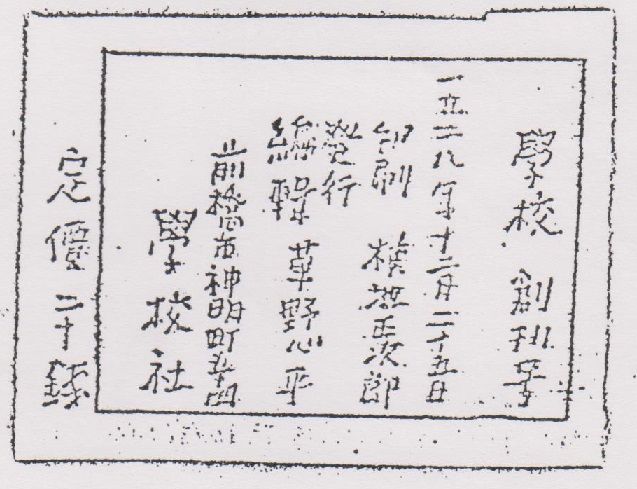 學校 創刊号
一九二八年十二月二十五日
印刷 横地正次郎
發行
編輯 草野心平
前橋市神明町
學校社
定價二十錢